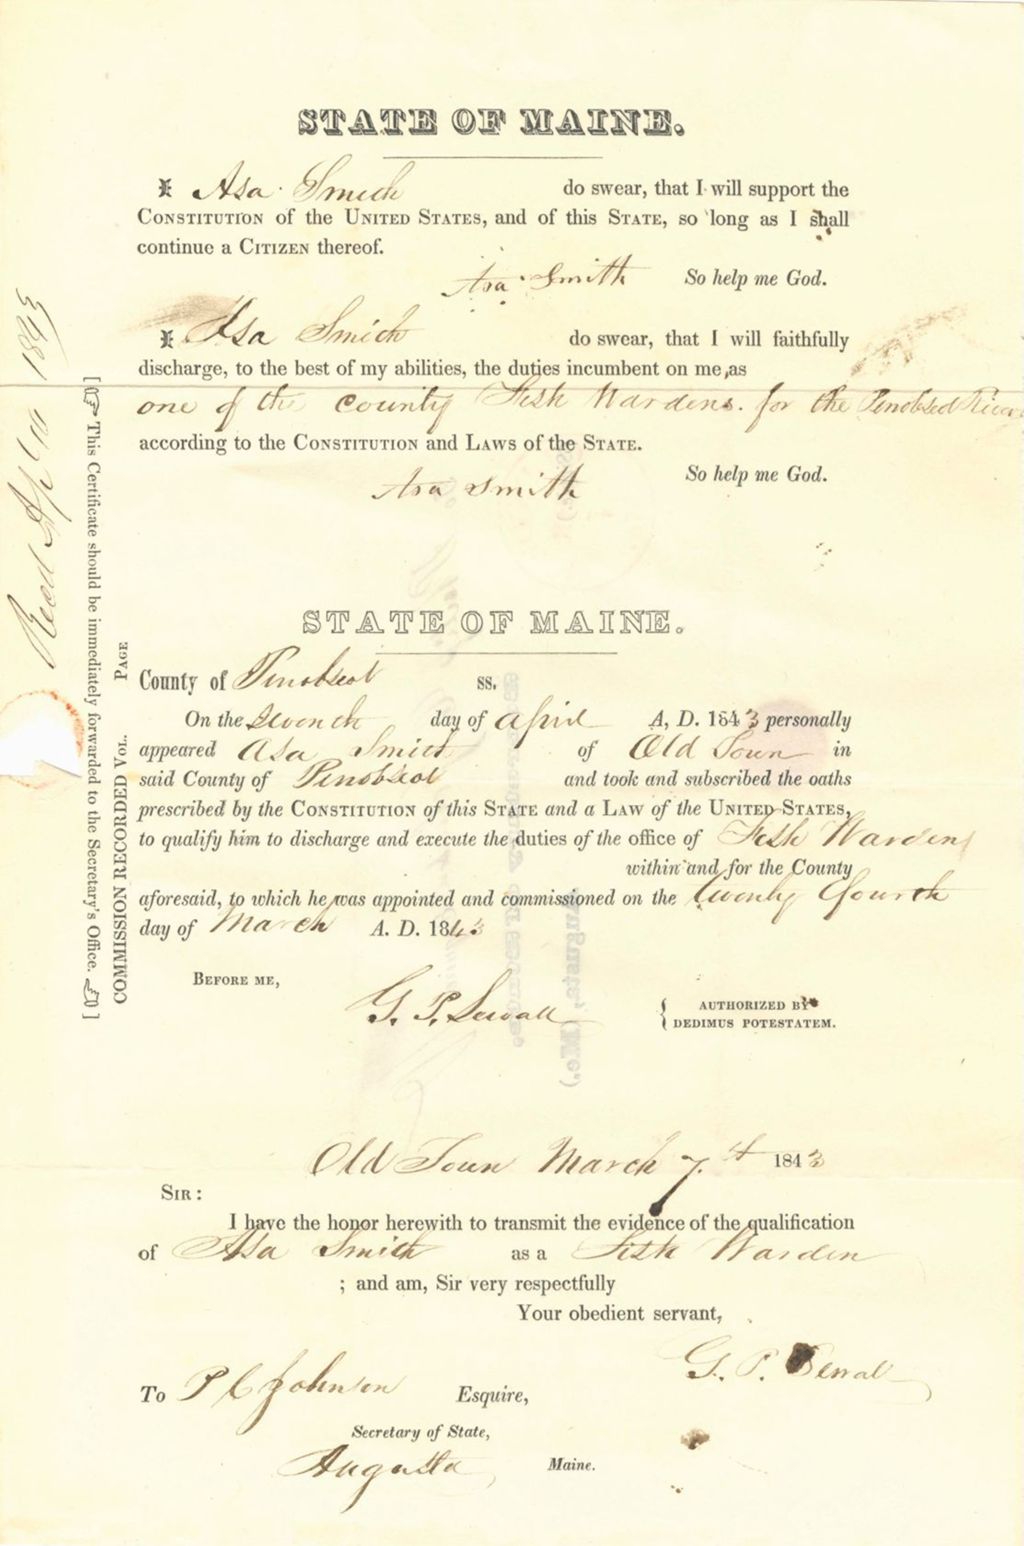 STATE OF MAINE.
I Asa Smith do swear, that I will support the
CONSTITUTION of the UNITED STATES, and of this STATE, so long as I shall
continue a CITIZEN thereof.
Asa Smith So help me God.
I Asa Smith do swear, that I will faithfully
discharge, to the best of my abilities, the duties incumbent on me, as
one of the county Fish Wardens. for the Penobscot River
according to the CONSTITUTION and LAWS of the STATE.
So help me God.
Asa Smith
STATE OF MAINE.
County of Penobscot ss.
On the Seventh day of April A, D. 1843 personally
appeared Asa Smith of Old Town in
said County of Penobscot and took and subscribed the oaths
prescribed by the CONSTITUTION of this STATE and a LAW of the UNITED STATES,
to qualify him to discharge and execute the duties of the office of Fish Warden
within and for the County
aforesaid, to which he was appointed and commissioned on the twenty fourth
day of March A. D. 1843
BEFORE ME,
G. P. Sewall
AUTHORIZED BY
DEDIMUS POTESTATEM.
Old Town March 7.th 1843
SIR:
I have the honor herewith to transmit the evidence of the qualification
of Asa Smith as a Fish Warden
; and am, Sir very respectfully
Your obedient servant,
G. P. Sewal
To P C Johnson Esquire,
Secretary of State,
Augusta Maine.
COMMISSION RECORDED VOL. PAGE
[☞ This Certificate should be immediately forwarded to the Secretary's Office. ☜]
Recd Apl 1843